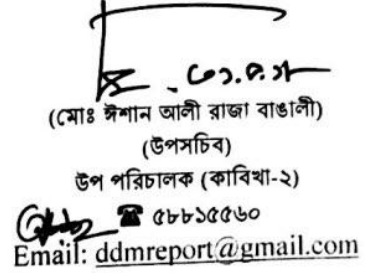 (মোঃ ঈশান আলী রাজা বাঙালী)
(উপসচিব)
উপ পরিচালক (কাবিখা-২)
☎ ৫৮৮১৫৫৬০
Email: ddmreport@gmail.com